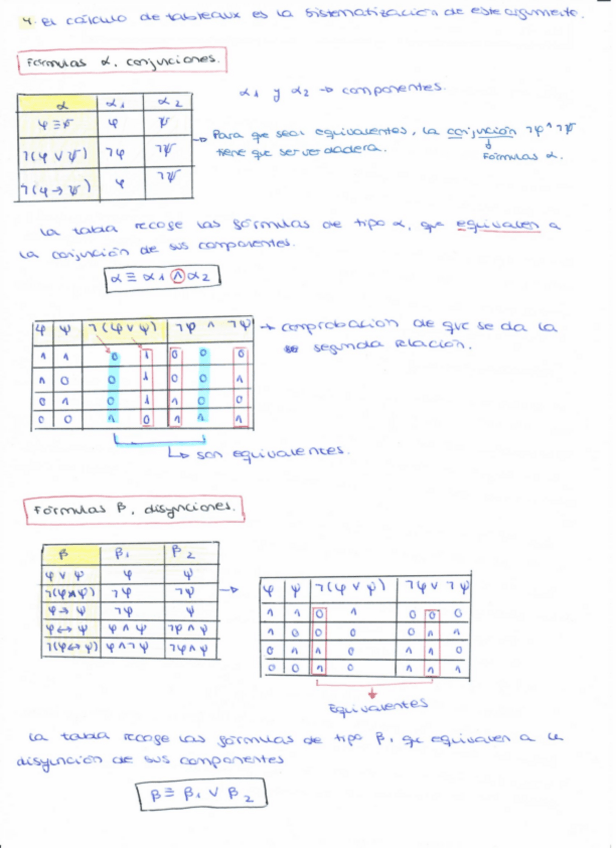 4. El cálculo de tableaux es la sistematización de este argumento.
Fórmulas α, conjunciones.
α1 y α2 → componentes.
α α1 α2
φ≡ψ φ ψ
¬(φ∨ψ) ¬φ ¬ψ
¬(φ→ψ) φ ¬ψ
→ Para que sean equivalentes, la conjunción ¬φ∧¬ψ
tiene que ser verdadera.
Fórmulas α.
La tabla recoge las fórmulas de tipo α, que equivalen a
la conjunción de sus componentes.
α ≡ α1 ∧ α2
φ ψ ¬(φ∨ψ) ¬φ ∧ ¬ψ
1 1 0 1 0 0 0
1 0 0 1 0 0 1
0 1 0 1 1 0 0
0 0 1 0 1 1 1
→ comprobación de que se da la
segunda relación.
↳ son equivalentes.
Fórmulas β, disyunciones.
β β1 β2
φ∨ψ φ ψ
¬(φ∧ψ) ¬φ ¬ψ
φ→ψ ¬φ ψ
φ↔ψ φ∧ψ ¬φ∧ψ
¬(φ↔ψ) φ∧¬ψ ¬φ∧ψ
→
φ ψ ¬(φ∨ψ) ¬φ∨¬ψ
1 1 0 1 0 0 0
1 0 0 0 0 1 1
0 1 1 0 1 1 0
0 0 1 0 1 1 1
Equivalentes
La tabla recoge las fórmulas de tipo β, que equivalen a la
disyunción de sus componentes
β ≡ β1 ∨ β2